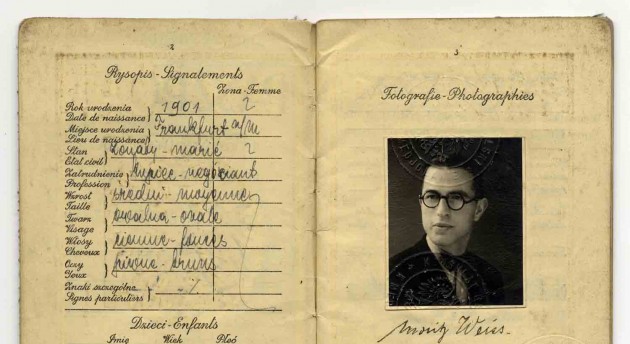 2
Rysopis - Signalements
Żona-Femme
Rok urodzenia
Date de naissance } 1901 2
Miejsce urodzenia
Lieu de naissance } Frankfurt a/M
Stan
Etat civil } żonaty - marié 2
Zatrudnienie
Profession } kupiec - négociant
Wzrost
Taille } średni - moyenne
Twarz
Visage } owalna - ovale
Włosy
Cheveux } ciemne - foncés
Oczy
Yeux } piwne - bruns
Znaki szczególne
Signes particuliers
Dzieci - Enfants
Imię Wiek Płeć
3
Fotografie - Photographies
Moritz Weiss.